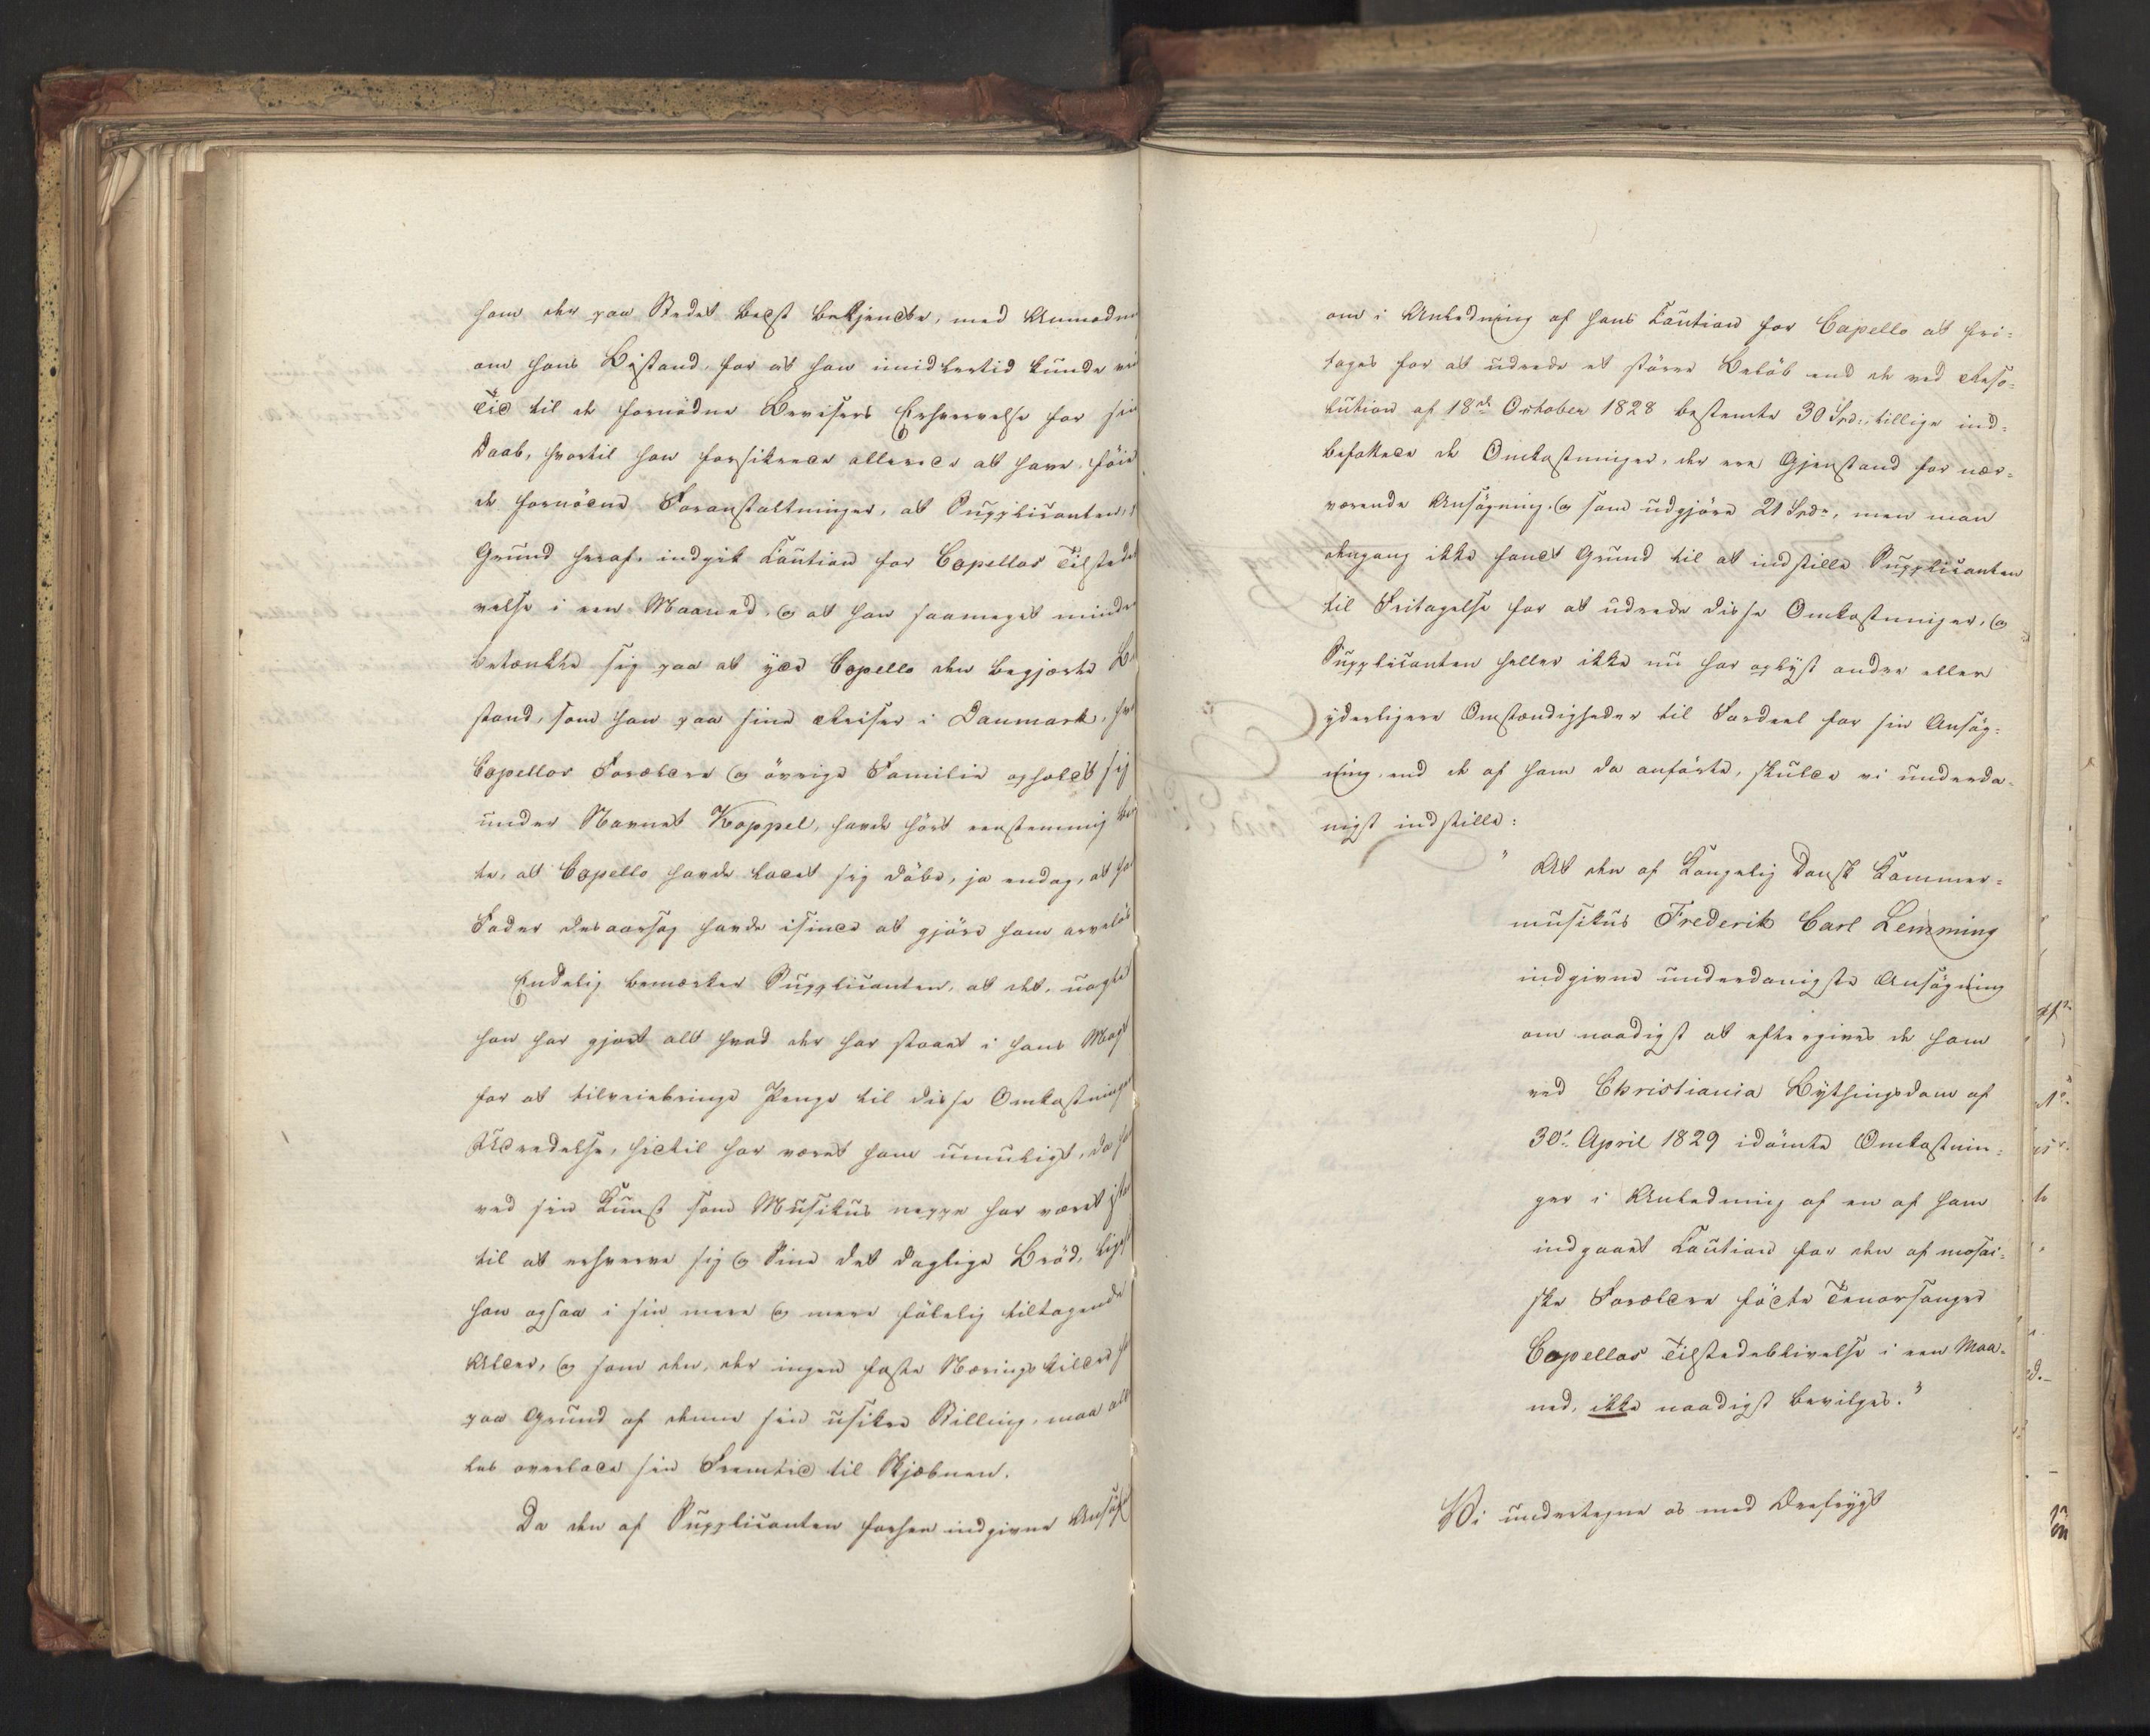 ham der paa Stedet bedst bekjendte, med Anmodn
om hans Bistand, for at han imidlertid kunde vin
Tid til de fornødne Bevisers Erhvervelse for sin
Daab, hvortil han forsikrede allerede at have føiet
de fornødne Foranstaltninger, at Supplicanten,
Grund heraf, indgik Caution for Capellos Tilstede
velse i een Maaned, og at han saameget mindre
betænkte sig paa at yde Capello den begjærte Bi
stand, som han paa sine Reiser i Danmark, hvo
Capellos Forældre og øvrige Familie opholdt sig
under Navnet Koppel, havde hørt eenstemmig be
te, at Capello havde ladet sig døbe, ja endog, at ha
Fader desaarsag havde isinde at gjøre ham arveløs
Endelig bemærker Supplicanten, at det, uagte
han har gjort alt hvad der har staaet i hans Magt
for at tilveiebringe Penge til disse Omkostninge
Udredelse, hidtil har været ham umuligt, da ha
ved sin Kunst som Musikus neppe har været ist
til at erhverve sig og Sine det daglige Brød, lige
han ogsaa i sin mere og mere følelig tiltagende
Alder, og som den, der ingen faste Næringskilder ha
paa Grund af denne sin usikre Stilling, maa all
les overlade sin Fremtid til Skjæbnen.
Da den af Supplicanten forhen indgivne Ansøg
om i Anledning af hans Caution for Capello at fri=
tages for at udrede et større Beløb end de ved Reso=
lution af 18de October 1828 bestemte 30 Spd:, tillige ind=
befattede de Omkostninger, der ere Gjenstand for nær=
værende Ansøgning, og som udgjøre 21 Spdr, men man
dengang ikke fandt Grund til at indstille Supplicanten
til Fritagelse for at udrede disse Omkostninger, og
Supplicanten heller ikke nu har oplyst andre eller
yderligere Omstændigheder til Fordeel for sin Ansøg=
ning, end de af ham da anførte, skulde vi underda=
nigst indstille:
" At den af Kongelig Dansk Kammer=
musikus Frederik Carl Lemming
indgivne underdanigste Ansøgning
om naadigst at eftergives de ham
ved Christiania Bythingsdom af
30te April 1829 idømte Omkostnin=
ger i Anledning af en af ham
indgaaet Caution for den af mosai=
ske Forældre fødte Tenorsanger
Capellos Tilstedeblivelse i een Maa=
ned, ikke naadigst bevilges."
Vi undertegne os med Ærefrygt